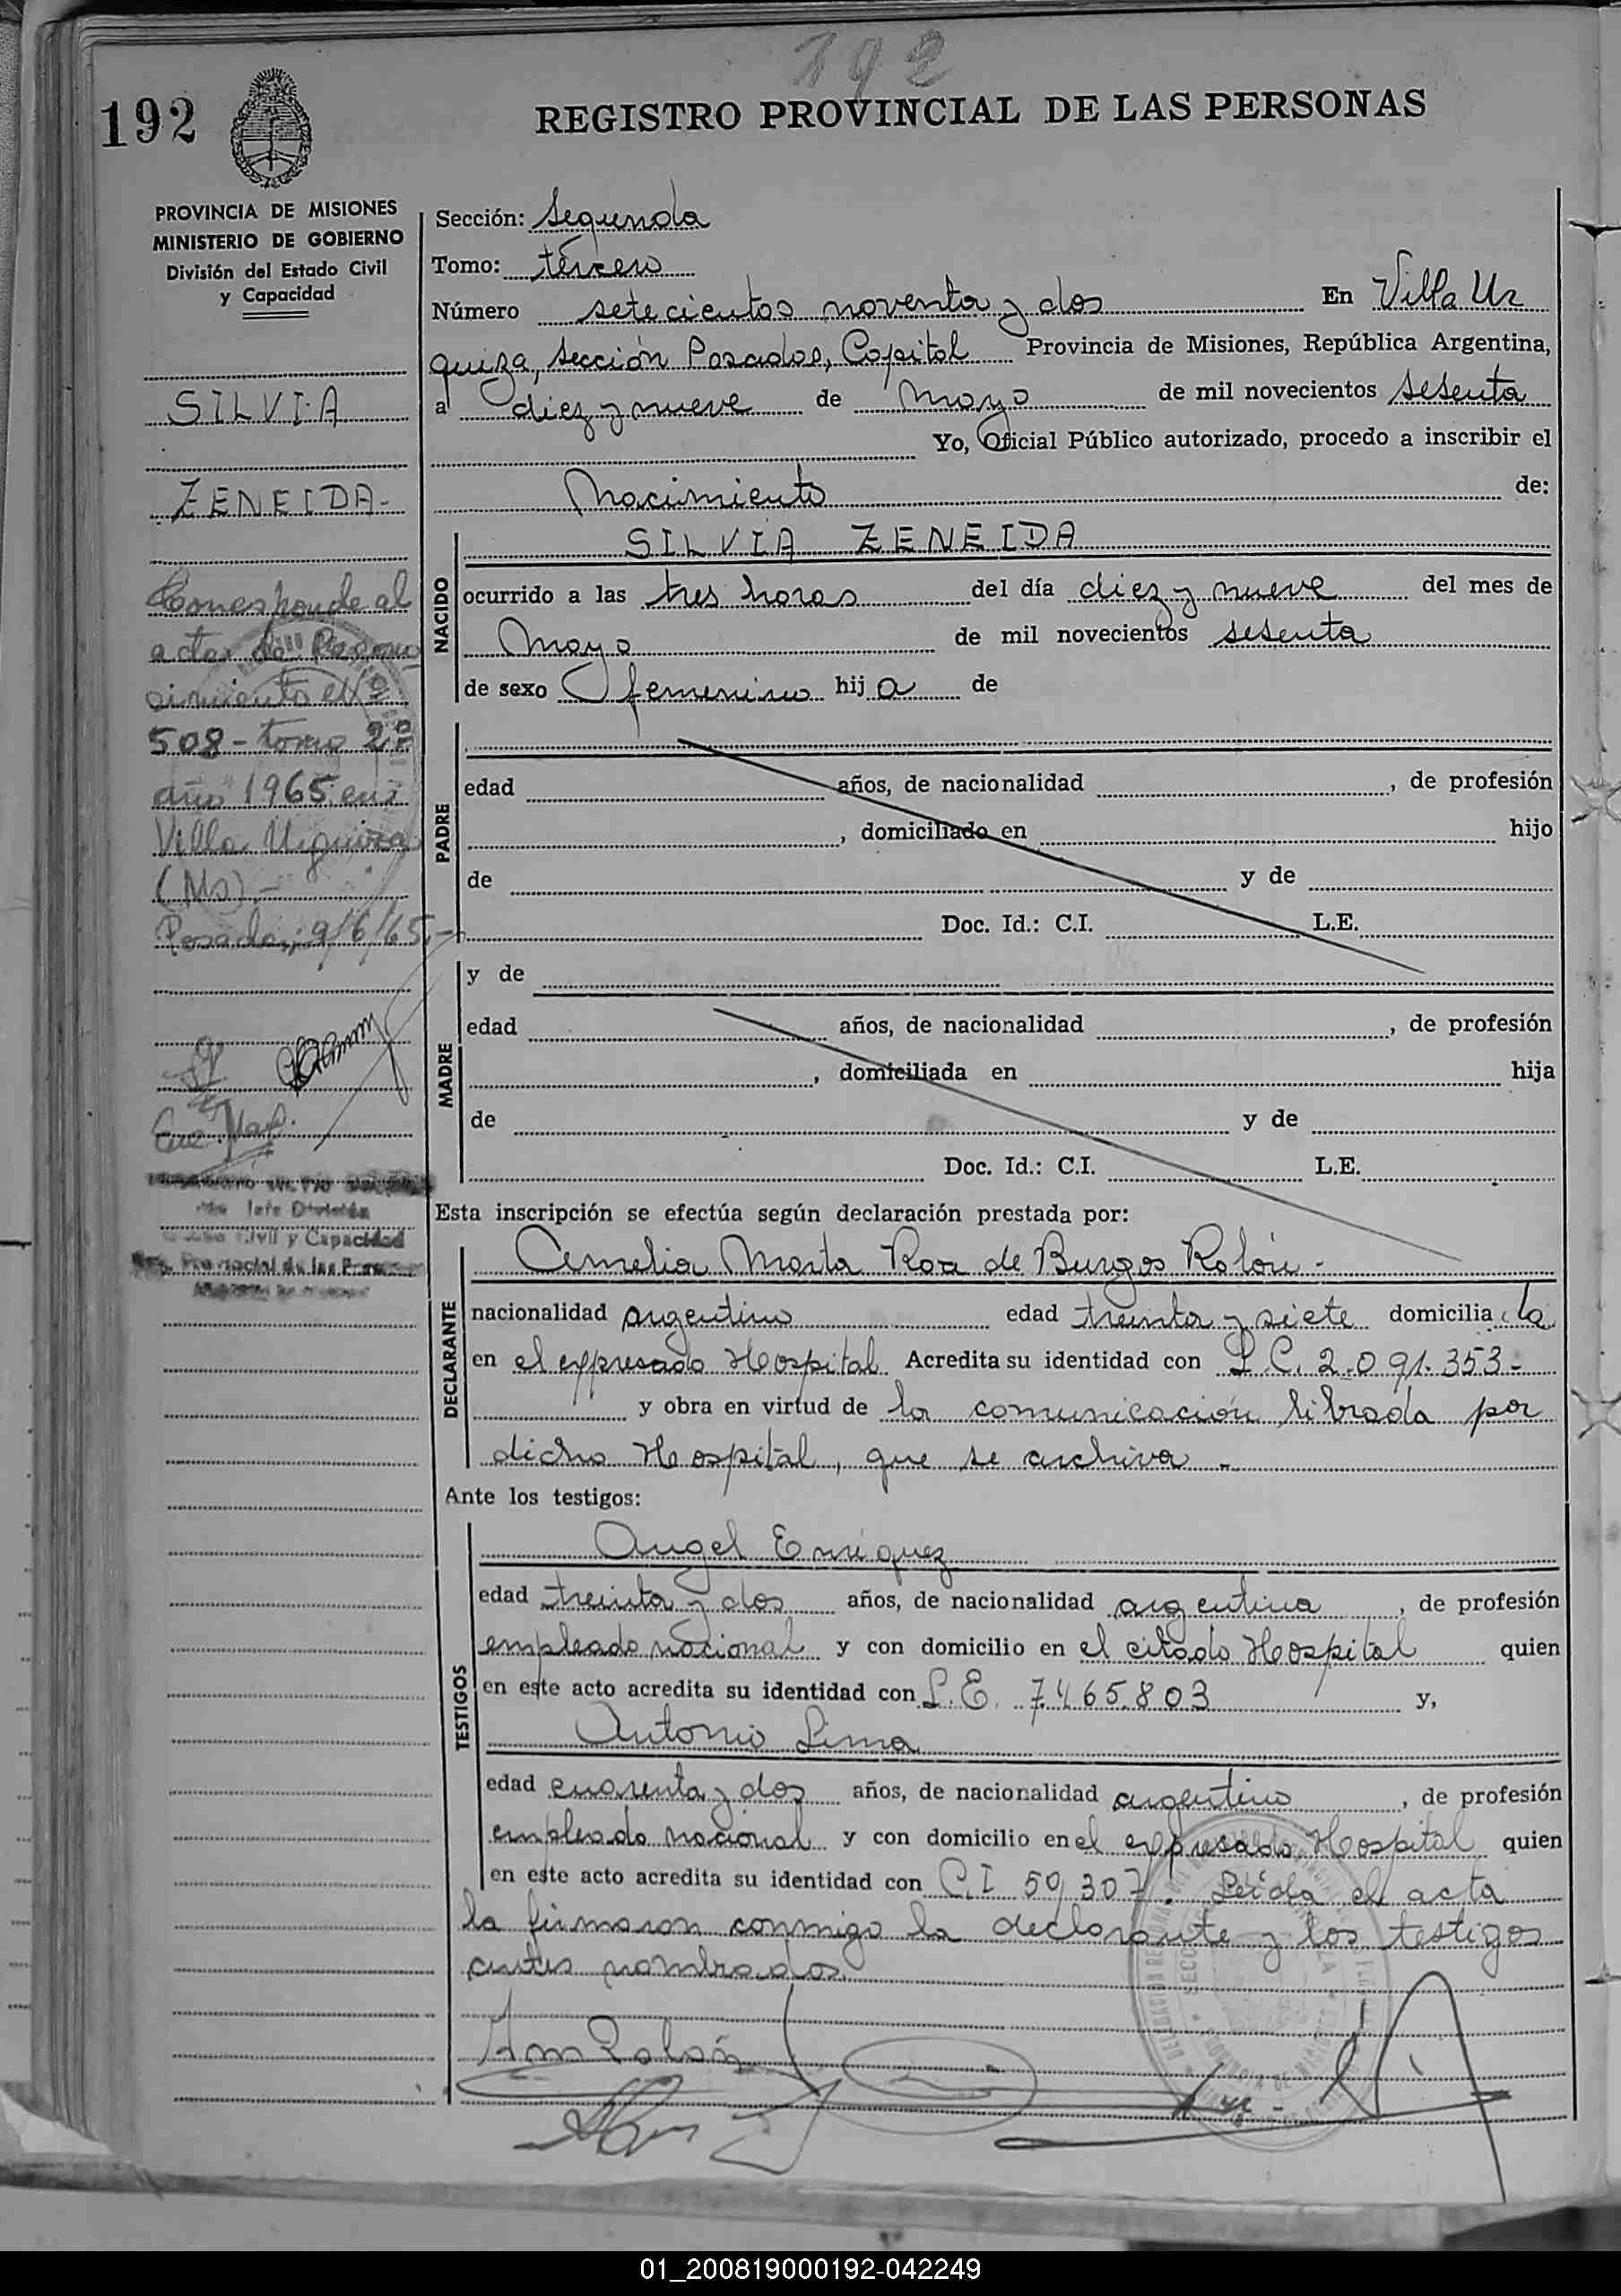 792
192
REGISTRO PROVINCIAL DE LAS PERSONAS
PROVINCIA DE MISIONES
MINISTERIO DE GOBIERNO
División del Estado Civil
y Capacidad
SILVIA
ZENEIDA-
Corresponde al
acta de Recono
cimiento Nº
508 - tomo 2º
año 1965 en
Villa Urquiza
(Ms).-
Posadas, 9/6/65.-
Jefe División
Civil y Capacidad
Sección: Segunda
Tomo: tercero
Número setecientos noventa y dos En Villa Ur
quiza, Sección Posadas, Capital Provincia de Misiones, República Argentina,
a diez y nueve de Mayo de mil novecientos sesenta
Yo, Oficial Público autorizado, procedo a inscribir el
Nacimiento de:
NACIDO
SILVIA ZENEIDA
ocurrido a las tres horas del día diez y nueve del mes de
Mayo de mil novecientos sesenta
de sexo femenino hija de
PADRE
edad años, de nacionalidad , de profesión
, domiciliado en hijo
de y de
Doc. Id.: C.I. L.E.
MADRE
y de
edad años, de nacionalidad , de profesión
, domiciliada en hija
de y de
Doc. Id.: C.I. L.E.
Esta inscripción se efectúa según declaración prestada por:
DECLARANTE
Amelia Marta Roa de Burgos Rolón -
nacionalidad argentina edad treinta y siete domicilia da
en el expresado Hospital Acredita su identidad con L.C. 2.091.353-
y obra en virtud de la comunicación librada por
dicho Hospital, que se archiva -
Ante los testigos:
TESTIGOS
Angel Enriquez
edad treinta y dos años, de nacionalidad argentina , de profesión
empleado nacional y con domicilio en el citado Hospital quien
en este acto acredita su identidad con L.E. 7.465.803 y,
Antonio Lima
edad cuarenta y dos años, de nacionalidad argentino , de profesión
empleado nacional y con domicilio en el expresado Hospital quien
en este acto acredita su identidad con C.I 59.307. Leída el acta
la firmaron conmigo la declarante y los testigos
antes nombrados.
Am Rolón
01_200819000192-042249